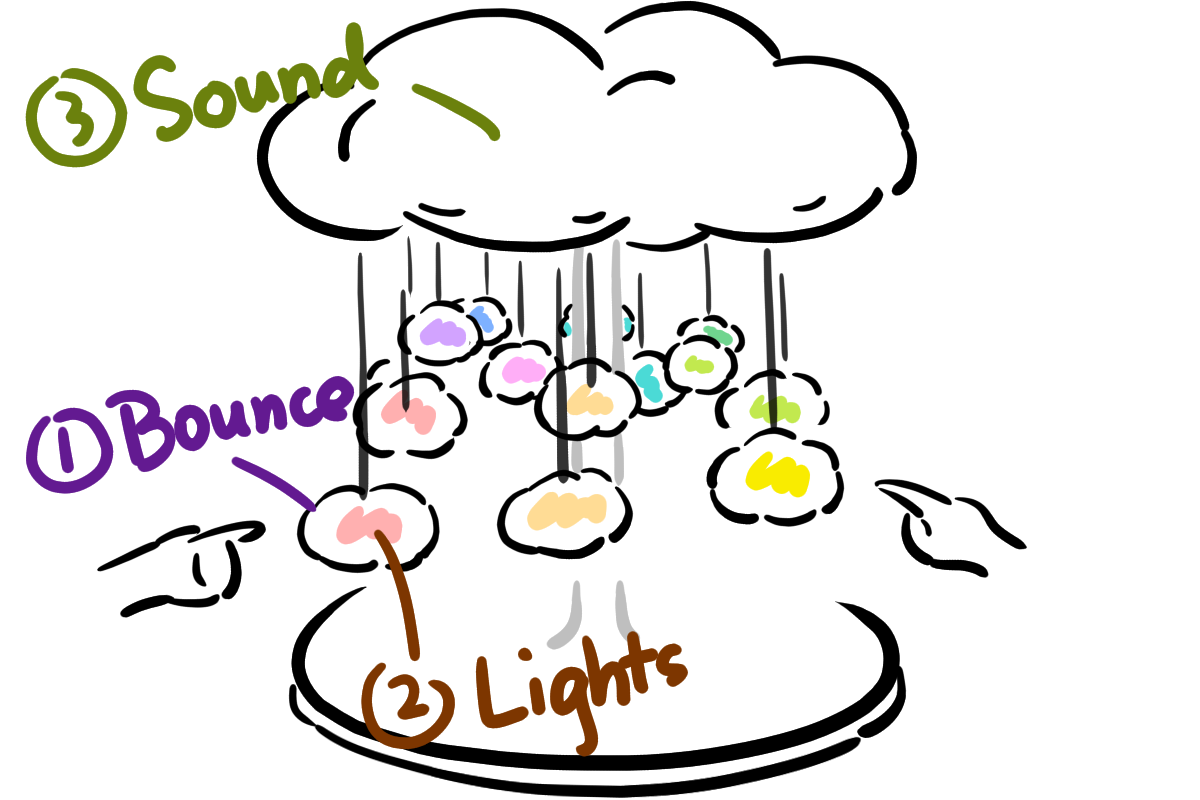 ③ Sound
① Bounce
② Lights